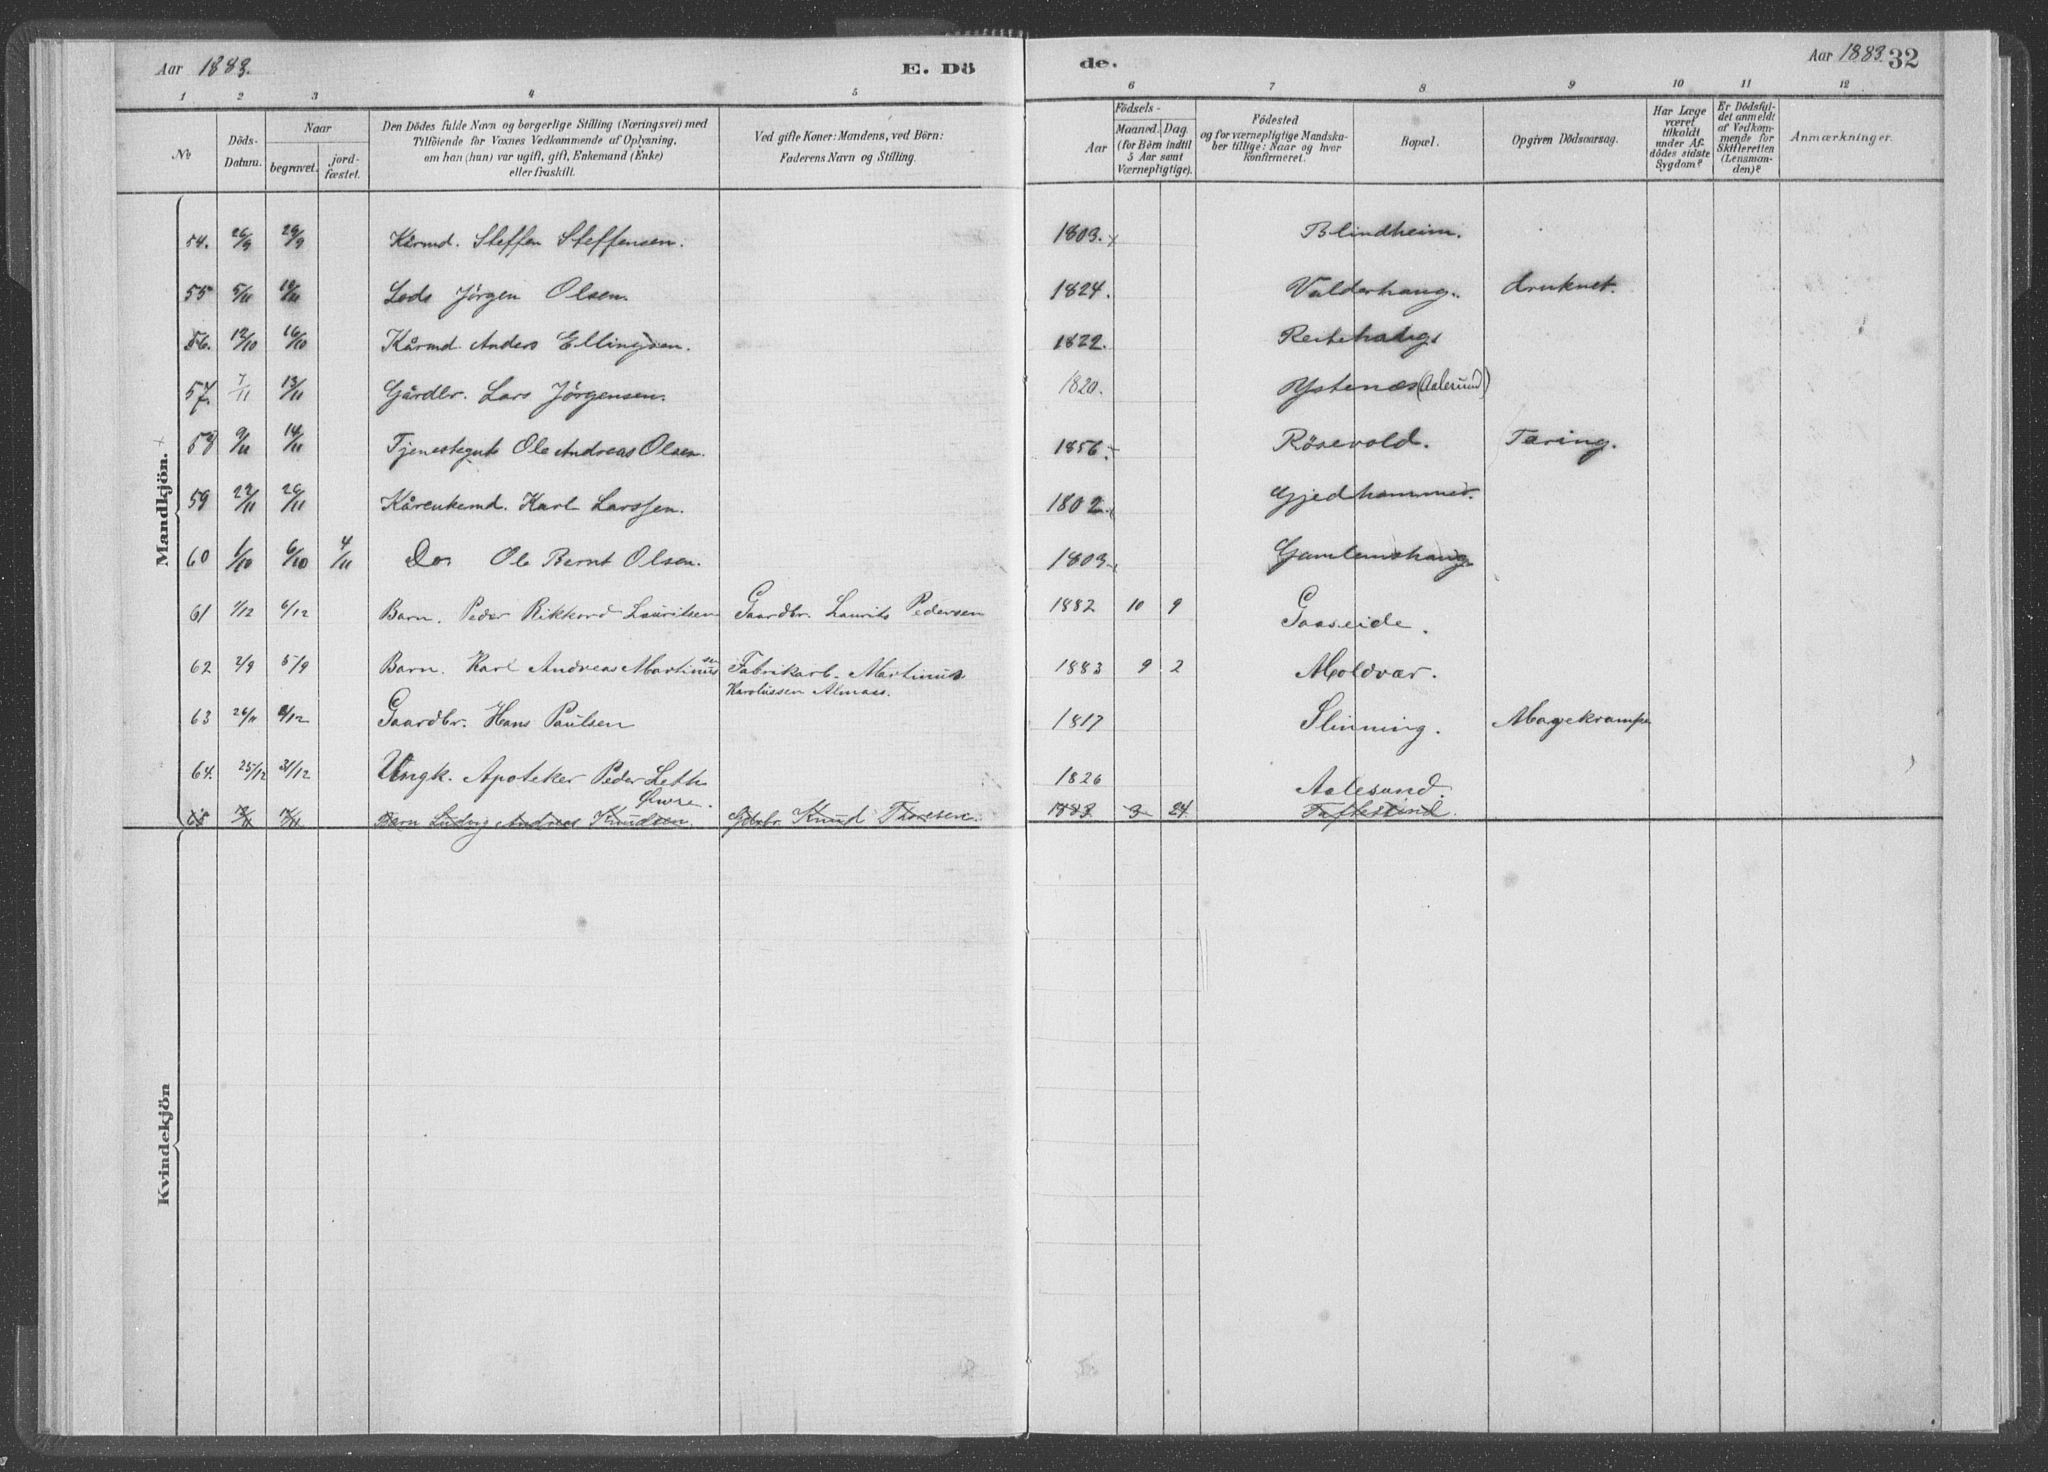 Aar 1883.
E. Dö
de.
Aar 1883. 32
1 2 3 4 5 6 7 8 9 10 11 12
No
Döds-
Datum.
Naar
begravet.
jord-
fæstet.
Den Dödes fulde Navn og borgerlige Stilling (Næringsvei) med
Tilföiende for Voxnes Vedkommende af Oplysning,
om han (hun) var ugift, gift, Enkemand (Enke)
eller fraskilt.
Ved gifte Koner: Mandens, ved Börn:
Faderens Navn og Stilling.
Födsels-
Aar
Maaned. Dag.
(for Börn indtil
5 Aar samt
Værnepligtige).
Födested
og for værnepligtige Mandska-
ber tillige: Naar og hvor
konfirmeret.
Bopæl.
Opgiven Dödsaarsag.
Har Læge
været
tilkaldt
under Af-
dödes sidste
Sygdom?
Er Dödsfal-
det anmeldt
af Vedkom-
mende for
Skifteretten
(Lensman-
den)?
Anmærkninger.
Mandkjön.
54. 26/9 29/9 Kårmd. Steffen Steffensen. 1803. Blindheim.
55 5/11 10/11 Lods Jörgen Olsen. 1824. Valderhaug. druknet.
56. 12/10 16/10 Kårmd. Anders Ellingsen. 1822. Reitehaug.
57. 7/11 13/11 Gårdbr. Lars Jörgensen. 1820. Ystenæs (Aalesund)
58 9/11 14/11 Tjenestegut Ole Andreas Olsen. 1856. Rösevold. Tæring.
59 22/11 26/11 Kårenkemd. Karl Larssen. 1802. Gjedhammer.
60 1/10 6/10 4/11 Do. Ole Bernt Olsen. 1803. Gamlemshaug
61 1/12 6/12 Barn. Peder Rikkard Lauritsen Gaardbr. Laurits Pedersen 1882 10 9 Gaaseide.
62 2/9 5/9 Barn. Karl Andreas Martinussen Fabrikarb. Martinus
Karolussen Almaas. 1883 9 2 Moldvær.
63 26/11 2/12 Gaardbr. Hans Paulsen 1817 Slinning. Mavekrampe
64. 25/12 31/12 Ungk. Apoteker Peder Leth
Øwre. 1826 Aalesund.
65 Barn Ludvig Andreas Knudsen. Gdbr. Knud Thoresen. 1883 3 24 Taftesund.
Kvindekjön